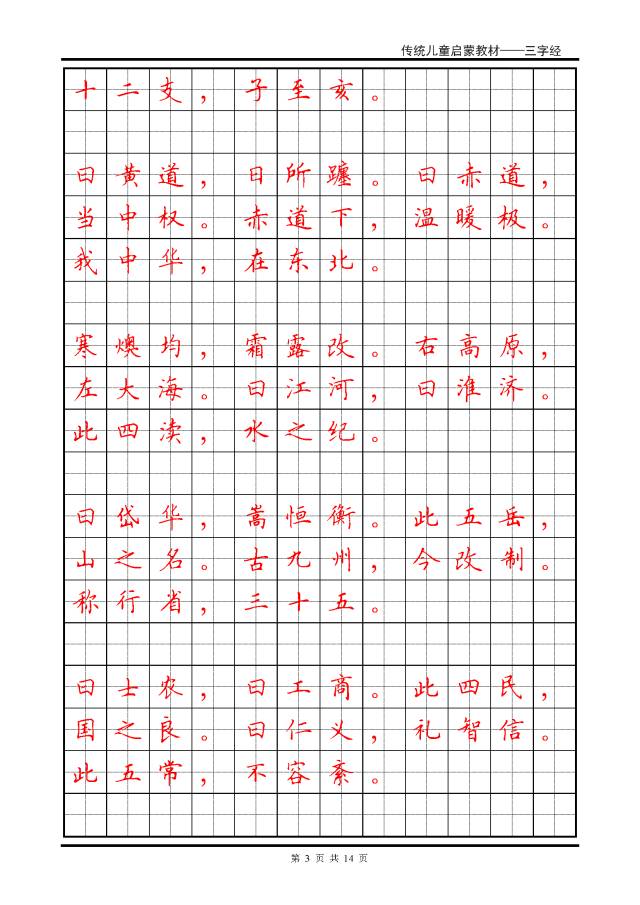 传统儿童启蒙教材——三字经
十二支，子至亥。
曰黄道，日所躔。曰赤道，
当中权。赤道下，温暖极。
我中华，在东北。
寒燠均，霜露改。右高原，
左大海。曰江河，曰淮济。
此四渎，水之纪。
曰岱华，嵩恒衡。此五岳，
山之名。古九州，今改制。
称行省，三十五。
曰士农，曰工商。此四民，
国之良。曰仁义，礼智信。
此五常，不容紊。
第 3 页 共 14 页